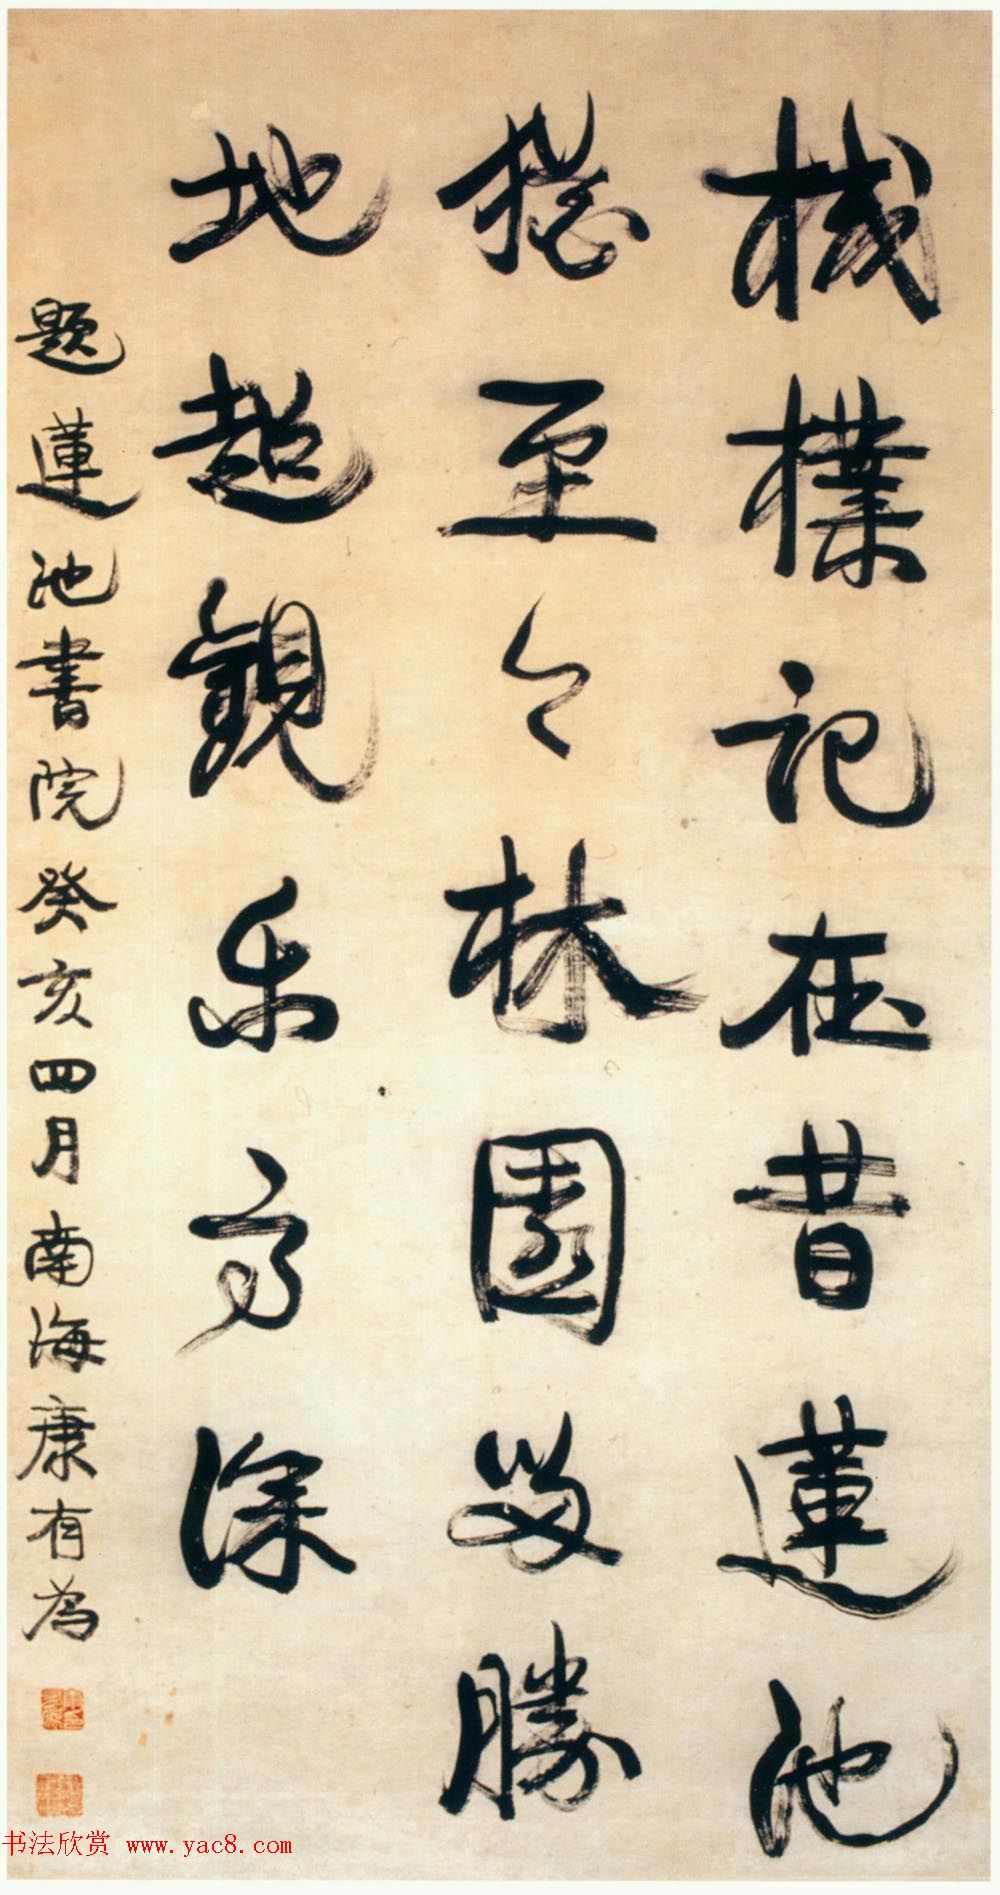 棫樸記在昔蓮池
猶至今林園留勝
地超觀乐高深
題蓮池書院癸亥四月南海康有為
书法欣赏 www.yac8.com